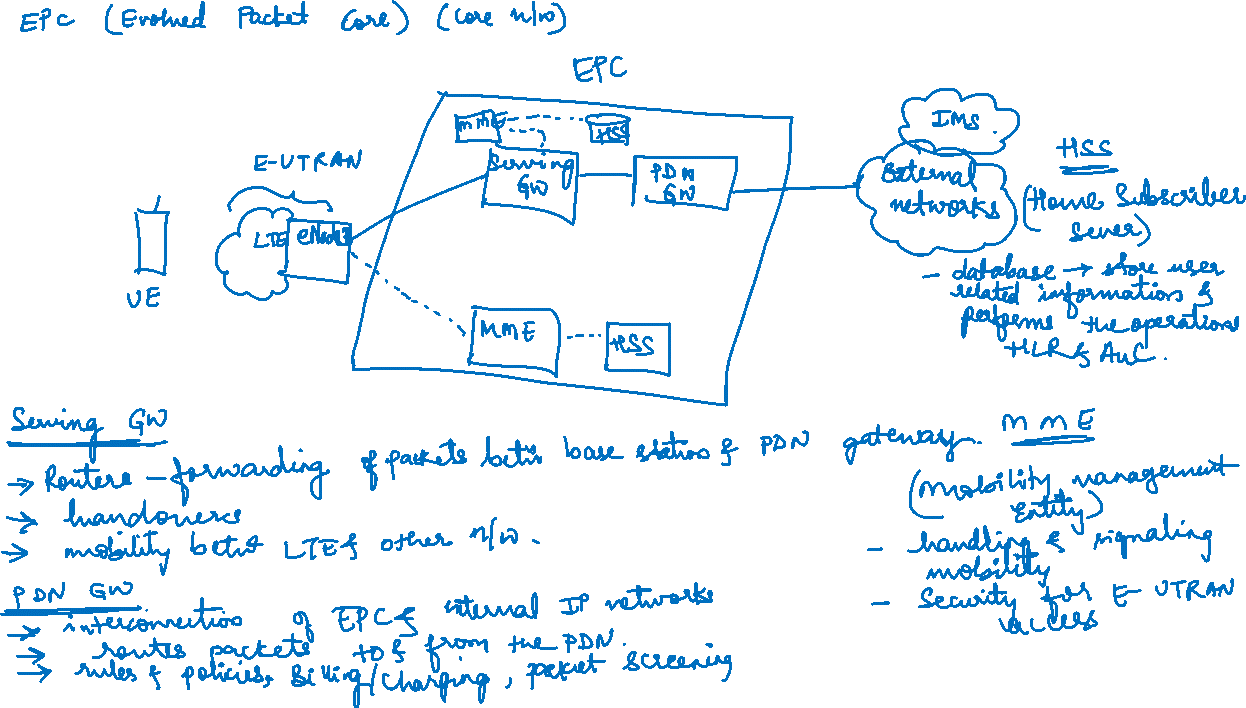 EPC (Evolved Packet Core) (Core n/w)
EPC
MME
HSS
Serving
GW
PDN
GW
E-UTRAN
LTE
eNodeB
UE
MME
HSS
IMS.
External
networks
HSS
(Home Subscriber
Sever)
- database → store user
related information &
performs the operations
HLR & AuC.
Serving GW
→ Routers - forwarding of packets betn base station & PDN gateway.
→ handovers
→ mobility betn LTE & other n/w.
PDN GW
→ interconnection of EPC & external IP networks
→ routes packets to & from the PDN.
→ rules & policies, Billing/Charging, packet screening
MME
(Mobility management
Entity)
- handling & signaling
mobility
- Security for E-UTRAN
access